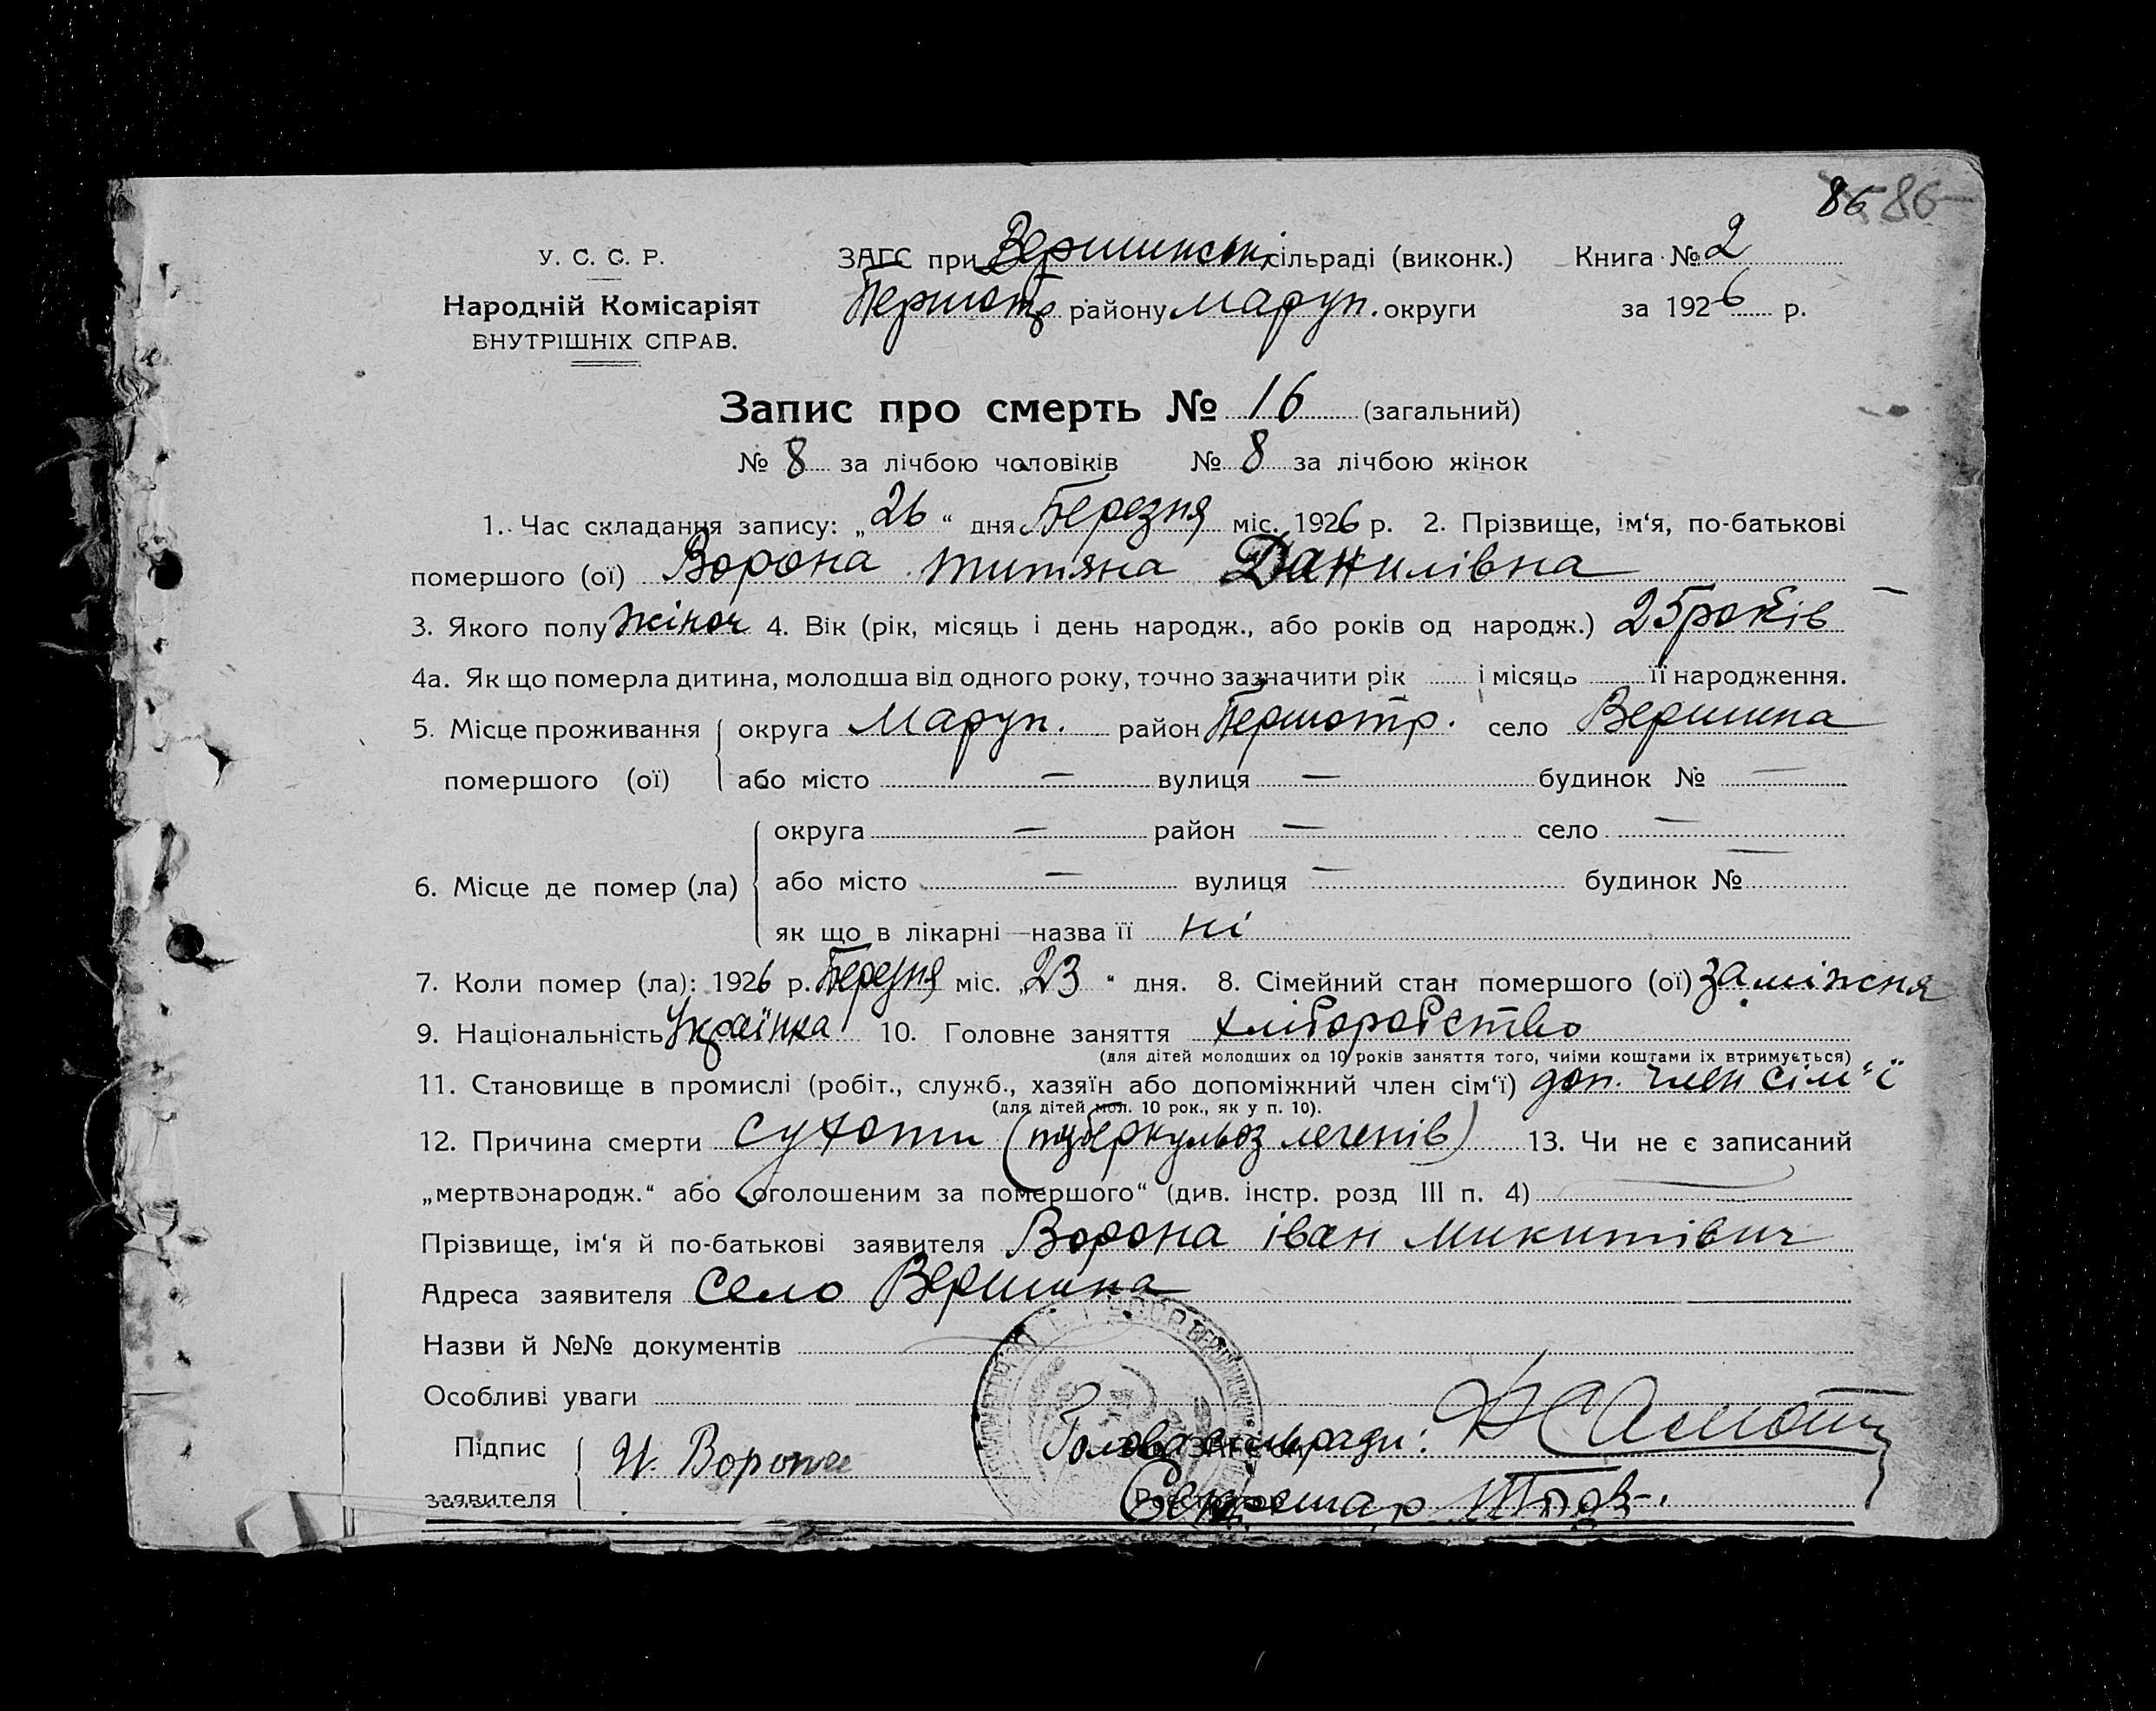 86 86
У. С. С. Р. ЗАГС при Вершинськ, сільраді (виконк.) Книга № 2
Першотр району Маруп. округи за 1926 р.
Народній Комісаріят
ВНУТРІШНІХ СПРАВ.
Запис про смерть № 16 (загальний)
№ 8 за лічбою чоловіків № 8 за лічбою жінок
1. Час складання запису: „26“ дня Березня міс. 1926 р. 2. Прізвище, ім‘я, по-батькові
помершого (ої) Ворона Титяна Данилівна
3. Якого полу жіноч 4. Вік (рік, місяць і день народж., або років од народж.) 25 років
4а. Як що померла дитина, молодша від одного року, точно зазначити рік і місяць її народження.
5. Місце проживання округа Маруп. район Першотр. село Вершина
помершого (ої) або місто — вулиця — будинок № —
округа — район — село —
6. Місце де помер (ла) або місто — вулиця — будинок № —
як що в лікарні—назва її ні
7. Коли помер (ла): 1926 р. Березня міс. „23“ дня. 8. Сімейний стан помершого (ої) заміжня
9. Національність Українка 10. Головне заняття хліборобство
(для дітей молодших од 10 років заняття того, чиїми коштами їх втримується)
11. Становище в промислі (робіт., служб., хазяїн або допоміжний член сім‘ї) доп. член сім“ї
(для дітей мол. 10 рок., як у п. 10).
12. Причина смерти сухоти (туберкульоз легенів) 13. Чи не є записаний
„мертвонародж.“ або „оголошеним за помершого“ (див. інстр. розд III п. 4)
Прізвище, ім‘я й по-батькові заявителя Ворона Іван Микитівич
Адреса заявителя Село Вершина
Назви й №№ документів
Особливі уваги
Підпис И. Ворона Голова сільради:
заявителя Секретар